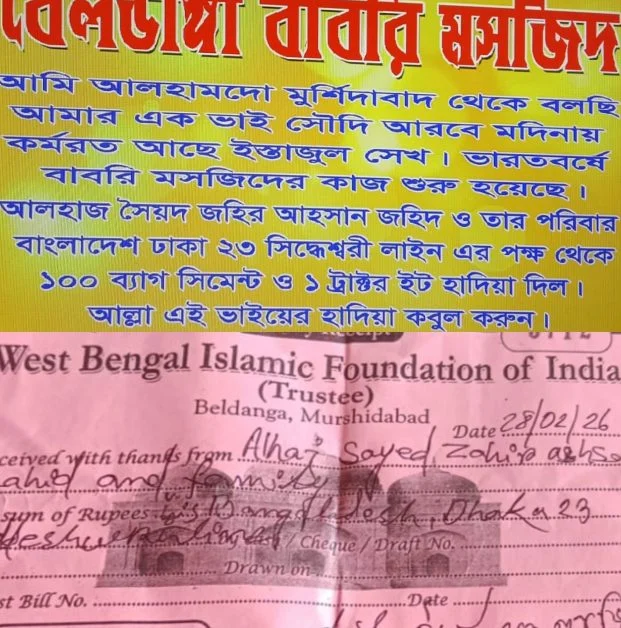 বেলডাঙ্গা বাবরি মসজিদ
আমি আলহামদো মুর্শিদাবাদ থেকে বলছি
আমার এক ভাই সৌদি আরবে মদিনায়
কর্মরত আছে ইস্তাজুল সেখ। ভারতবর্ষে
বাবরি মসজিদের কাজ শুরু হয়েছে।
আলহাজ সৈয়দ জহির আহসান জহিদ ও তার পরিবার
বাংলাদেশ ঢাকা ২৩ সিদ্ধেশ্বরী লাইন এর পক্ষ থেকে
১০০ ব্যাগ সিমেন্ট ও ১ ট্রাক্টর ইট হাদিয়া দিল।
আল্লা এই ভাইয়ের হাদিয়া কবুল করুন।
West Bengal Islamic Foundation of India
(Trustee)
Beldanga, Murshidabad
Date 28/02/26
ceived with thanks from Alhaj Sayed Zohir
ahid and family
sum of Rupees Bangladesh, Dhaka 23
/ Cheque / Draft No.
Drawn on
st Bill No. Date